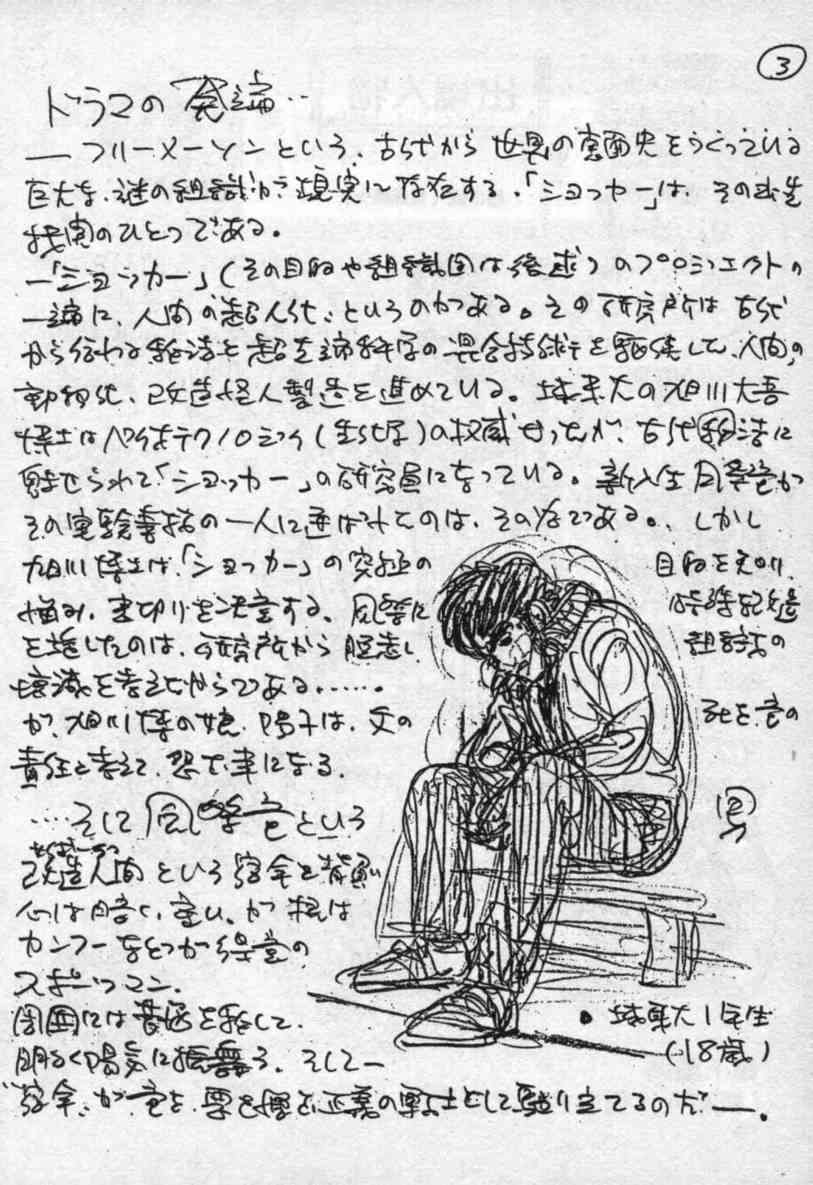 3
ドラマの発端…
— フリーメーソンという、古代から世界の裏面史をうごめいている
巨大な、謎の組織が現実に存在する。「ショッカー」は、その
機関のひとつである。
—「ショッカー」(その目的や組織図は後述)のプロジェクトの
一端に、人間の超人化、というのがある。その研究所は古代
から伝わる秘法と超先端科学の混合技術を駆使して、人間の
動物化、改造怪人製造を進めている。城東大の旭川大吾
博士はバイオテクノロジィ(生化学)の権威だったが、古代秘法に
魅せられて「ショッカー」の研究員になっている。新入生 風祭竜が
その実験素材の一人に選ばれたのは、その為である。しかし
旭川博士は、「ショッカー」の究極の目的を知り、
悩み、裏切りを決意する。風祭に特殊改造
を施したのは、研究所から脱走し組織の
壊滅を考えたからである……
が、旭川博の娘 陽子は、父の死を、竜の
責任と考えて、怨む事になる。
…そして 風祭竜という男
改造人間という宿命を背負い
心は暗く、重い。が根は
カンフーなどが得意の
スポーツマン。
周囲には普通を装して、
明るく陽気に振舞う。そして—
"宿命"が竜を 正義の戦士として駆り立てるのだ—。
• 城東大1年生
(18歳)